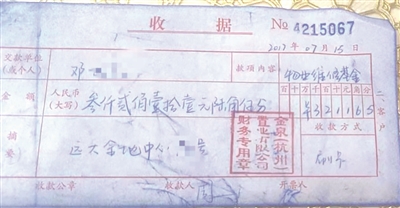 收 据 No 4215067
2017年07月15日
交款单位(或个人) 邓 款项内容: 物业维修基金
金额 人民币(大写) 叁仟贰佰壹拾壹元陆角伍分 百十万千百十元角分 ¥321165
收款方式
摘要 远大金地中心 号
金泉(杭州)置业有限公司
财务专用章
收款公章 收款人 开票人
二 客户